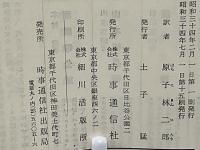 昭和三十四年二月一日第一刷発行
昭和三十四年七月一日第十五刷発行
訳者 原子林二郎
発行者 土子猛
東京都千代田区日比谷公園二
発行所 株式会社 時事通信社
東京都中央区銀座西
印刷所 株式会社 細川活版所
東京都千代田区神田美土代町七
発売所 時事通信社出版局